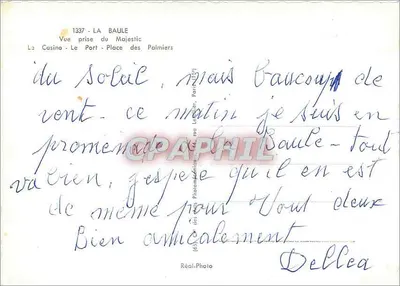 1337 - LA BAULE
Vue prise du Majestic
Le Casino - Le Port - Place des Palmiers
du soleil, mais baucoup de
vent - ce matin je suis en
promenade a la Baule - tout
va bien, j'espere qu'il en est
de même pour Vous deux
Bien amicalement
Dellea
Réal-Photo
CPAPHIL